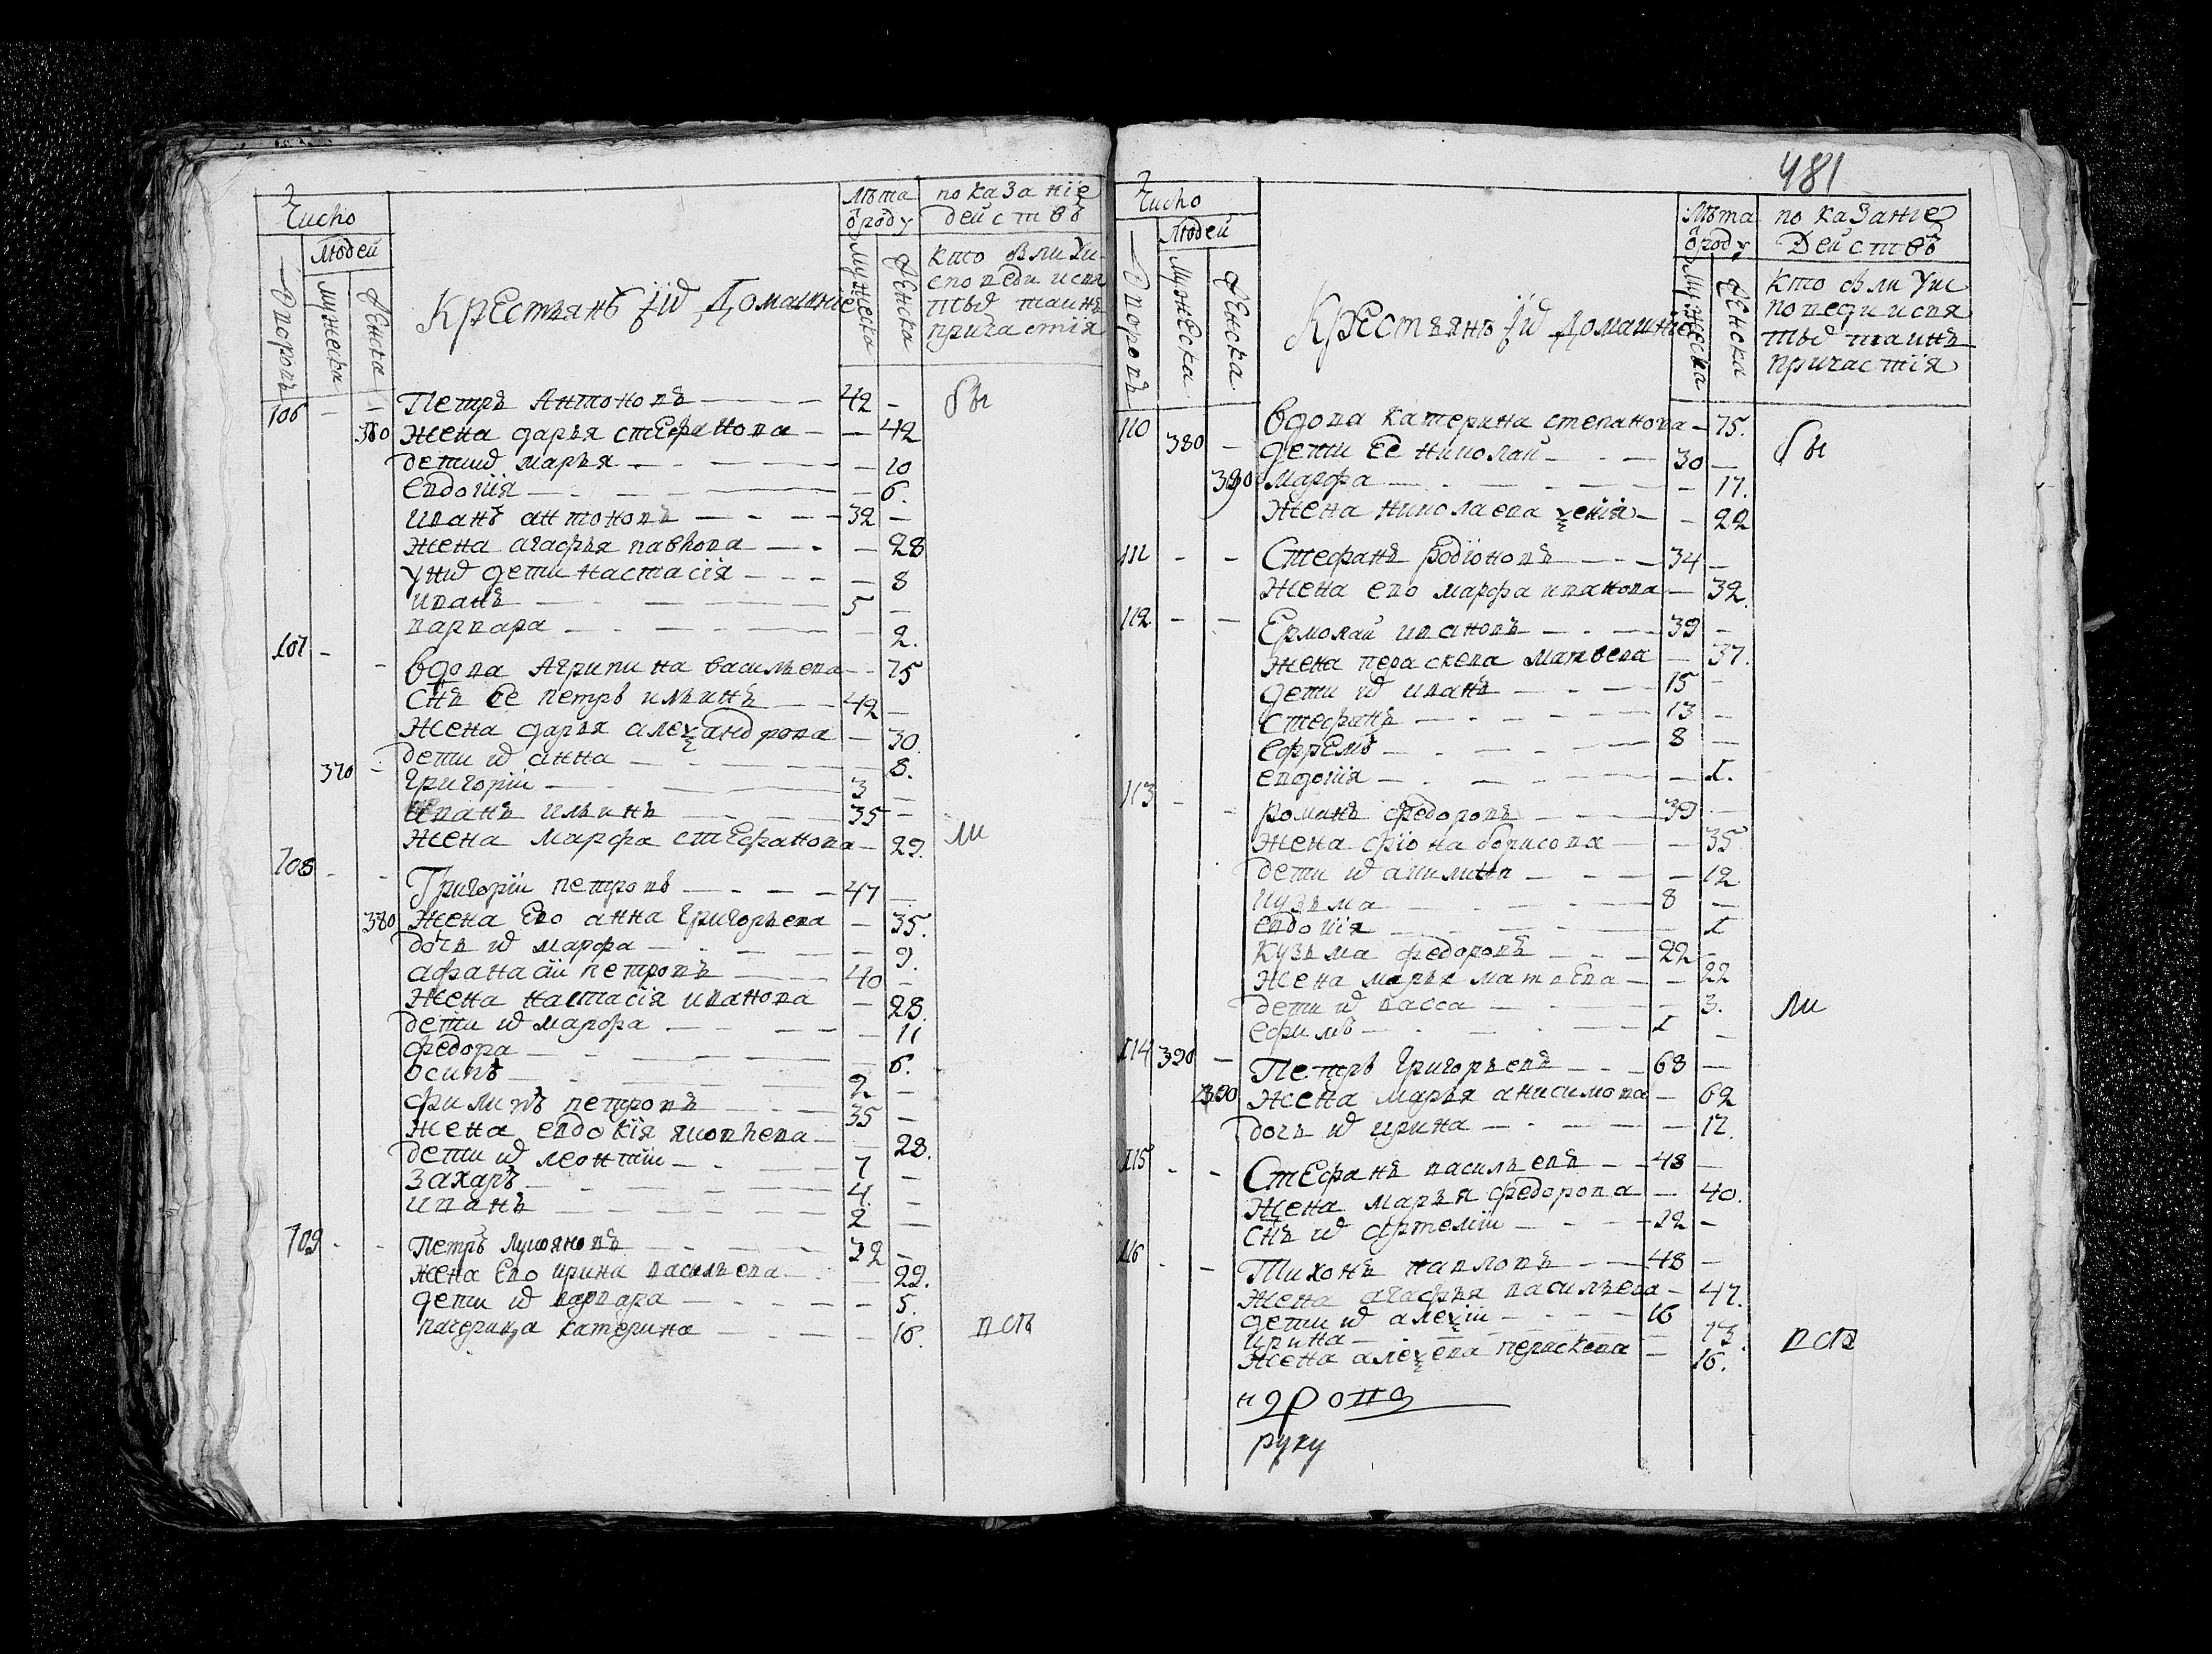 Число
Людей
Дворовъ
мужеска
женска
Крестьянъ їихъ Домашние
Лѣта
ѿроду
Мужеска
Женска
показаніе
действъ
кто былъ у и
споведи и свя
тыхъ таинъ
причастія
106 - - Петръ Антоновъ 42 - бы
380 жена дарья стефанова - 42
дети ихъ марья - 10
евдокія - 6.
иванъ антоновъ 32 -
жена агафья павлова - 28
у них дети настасія - 8
иванъ 5 -
варвара - 2.
107 - - вдова Агрипина васильева - 75
снъ ее петръ ильинъ 42 -
жена дарья алеѯандрова - 30.
дети их анна - 8.
370 - григорій 3 -
иванъ ильинъ 35 -
жена марфа стефанова - 29. ли
108 - - Григорій петровъ 47 -
380 жена ево анна григорьева - 35.
дочь их марфа - 9.
афанасій петровъ 40 -
жена настасія иванова - 28.
дети их марфа - 11
федора - 6.
осипъ 2 -
филипъ петровъ 35 -
жена евдокія яковлева - 28.
дети их леонтій 7 -
захаръ 4 -
иванъ 2 -
109 - - Петръ лукояновъ 32 -
жена ево ирина васильева - 29.
дети их варвара - 5.
пачерица катерина - 16. всѣ
481
Число
Людей
Дворовъ
мужеска
женска
Крестьянъ їихъ Домашние
Лѣта
ѿроду
Мужеска
Женска
показаніе
Действъ
кто былъ у ис
поведи и свя
тыхъ таинъ
причастія
110 вдова катерина степанова - 75. бы
380 - дети ее николай 30 -
390 марфа - 17.
жена николаева ѯенія - 22
111 - - Стефанъ родіоновъ 34 -
жена ево марфа иванова - 32.
112 - - Ермолай ивановъ 39 -
жена пераскева матвева - 37.
дети их иванъ 15 -
стефанъ 13 -
ефремъ 8 -
евдокія - 1.
113 - - романъ федоровъ 39 -
жена фіона борисова - 35
дети их акилина - 12
кузьма 8 -
евдокія - 1
кузьма федоровъ 22 -
жена марья матвева - 22
дети их васса - 3. ли
ефимъ 1 -
114 390 - Петръ григорьевъ 68 -
жена марья анисимова - 62
дочь их ирина - 17.
115 - - Стефанъ васильевъ 48 -
жена марья федорова - 40.
снъ их артемій 12 -
116 - - Тихонъ павловъ 48 -
жена агафья васильева - 47.
дети их алеѯій 16
ирина - 13.
жена алеѯева пераскева - 16. всѣ
руку